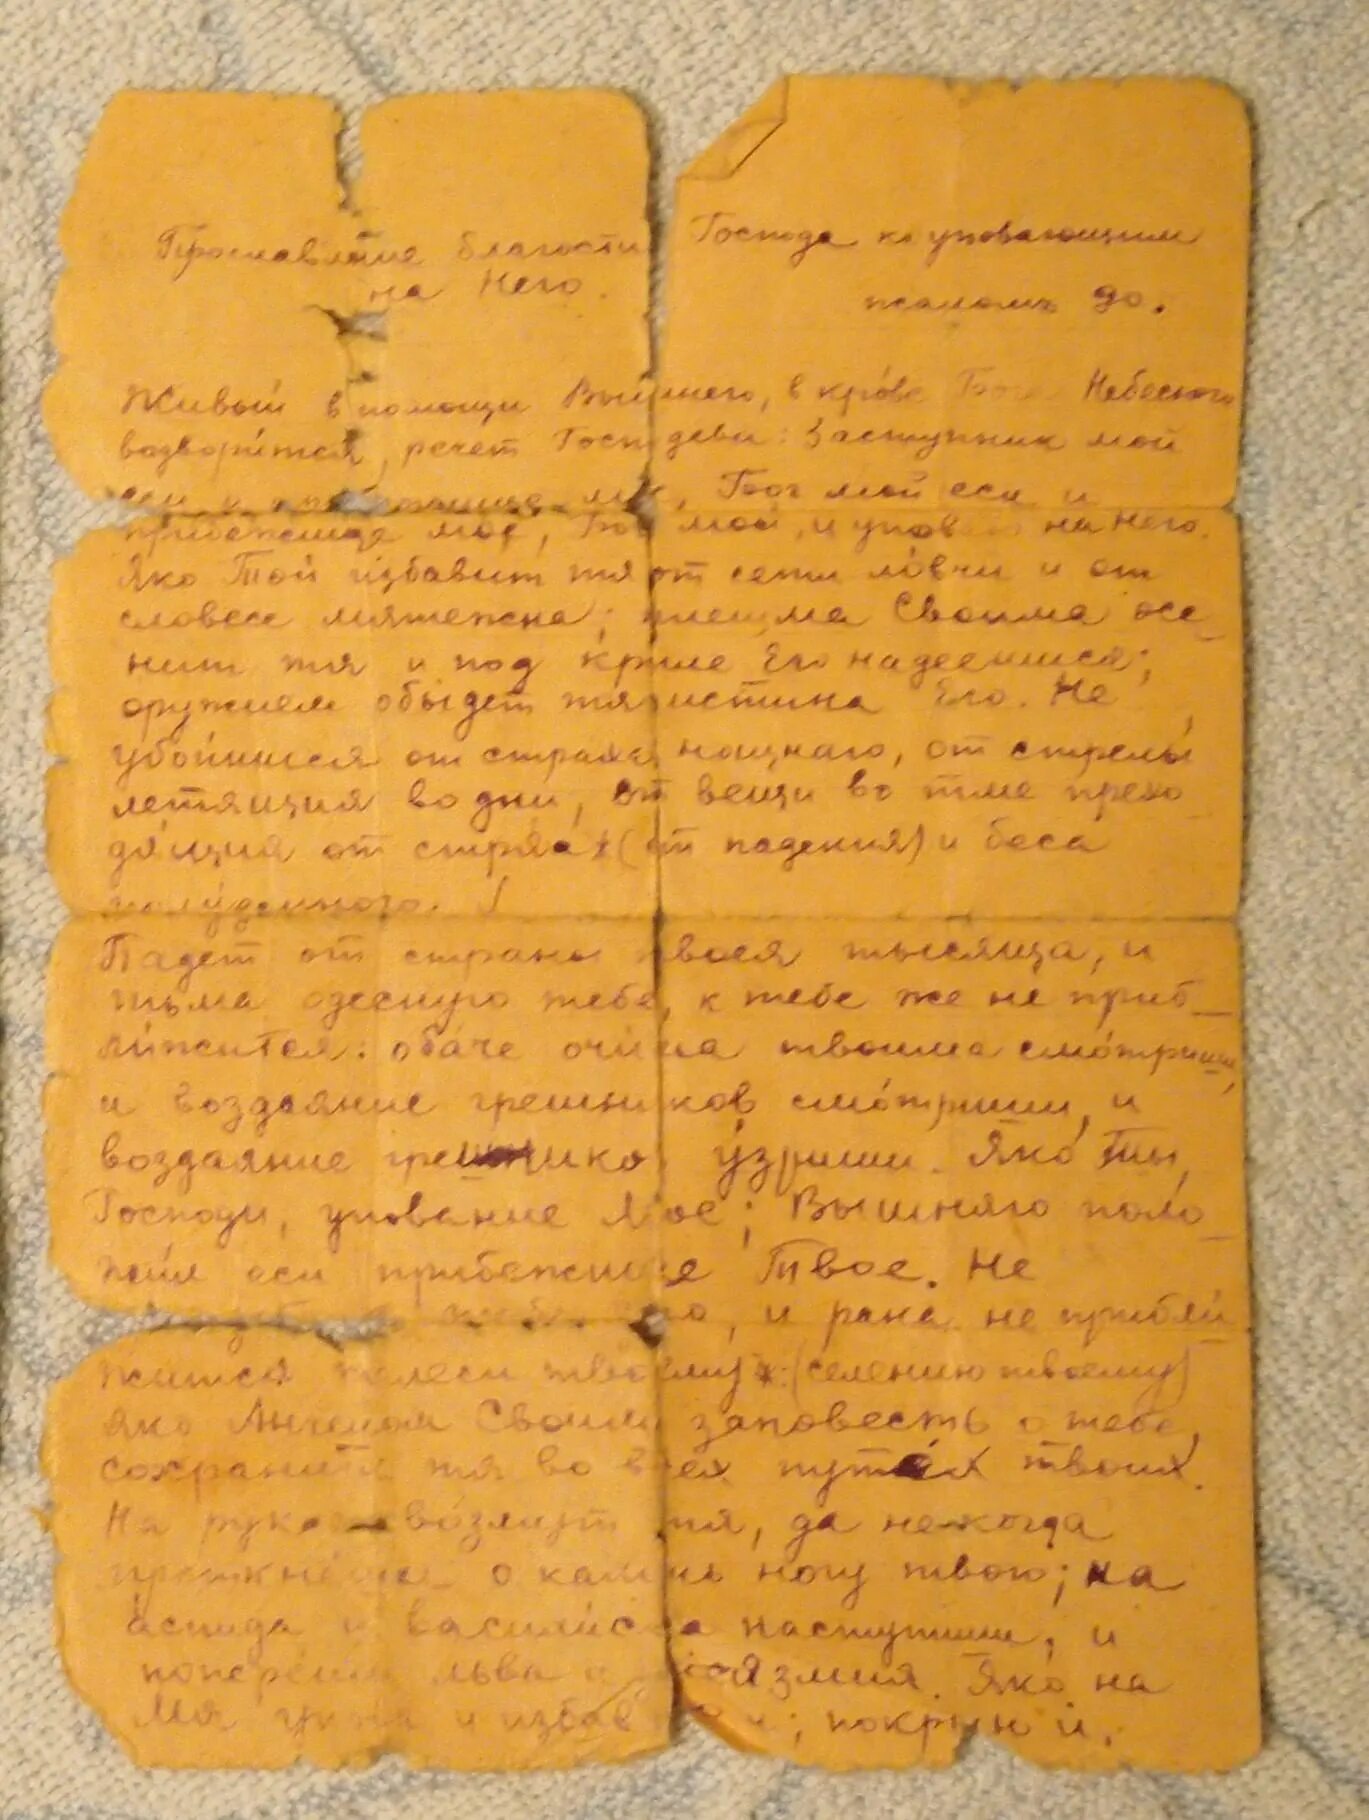 Прославление благости Господа к уповающим
на Него.
псаломъ 90.
Живый в помощи Вышнего, в кро́ве Бога Небесного
водвори́тся, речет Господеви: Заступник мой
еси и прибежище мое, Бог мой еси и
прибежище мое, Бог мой, и уповаю на Него.
Яко Той избавит тя от сети ло́вчи и от
словесе мятежна; плещма Своима осе-
нит тя и под криле Его надеешися;
оружием обы́дет тя истина Его. Не
убои́шися от страха нощнаго, от стрелы́
летящия во дни, от вещи во тме прехо-
дя́щия от стряа́ (от падения) и беса
полу́денного.
Падет от страны твоея тысяща, и
тьма одесную тебе, к тебе же не приб-
ли́жится: оба́че очи́ма твоима смо́триши,
и воздаяние грешников смо́триши, и
воздаяние грешнико у́зриши. Яко́ Ты,
Господи, упование Мое; Вышняго поло-
жи́л еси прибежище Твое. Не
и рана не прибли́-
жится телеси твоему: (селению твоему)
яко Ангелом Своим заповесть о тебе,
сохранити тя во всех путя́х твоих.
На руках во́змут тя, да некогда
преткне́ши о камень ногу твою; на
а́спида и васили́ска наступиши, и
попере́ши льва и змия. Яко́ на
Мя упова и избавлю и; покрыю и,